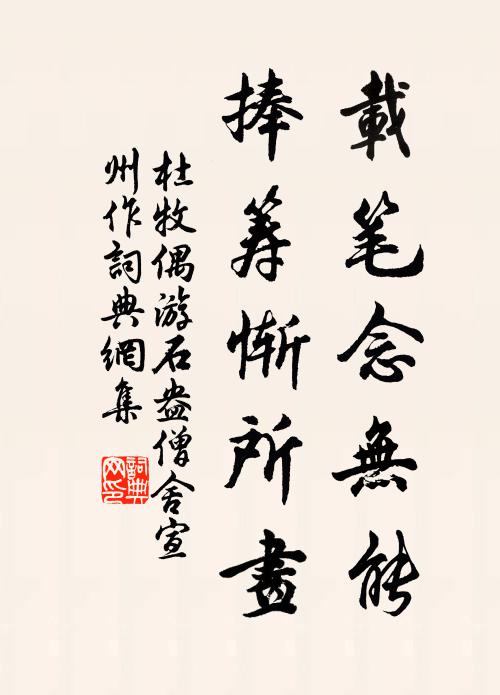 載笔念無能
捧筹慚所畫
杜牧偶游石盎僧舍宣
州作詞典網集
詞典
网印